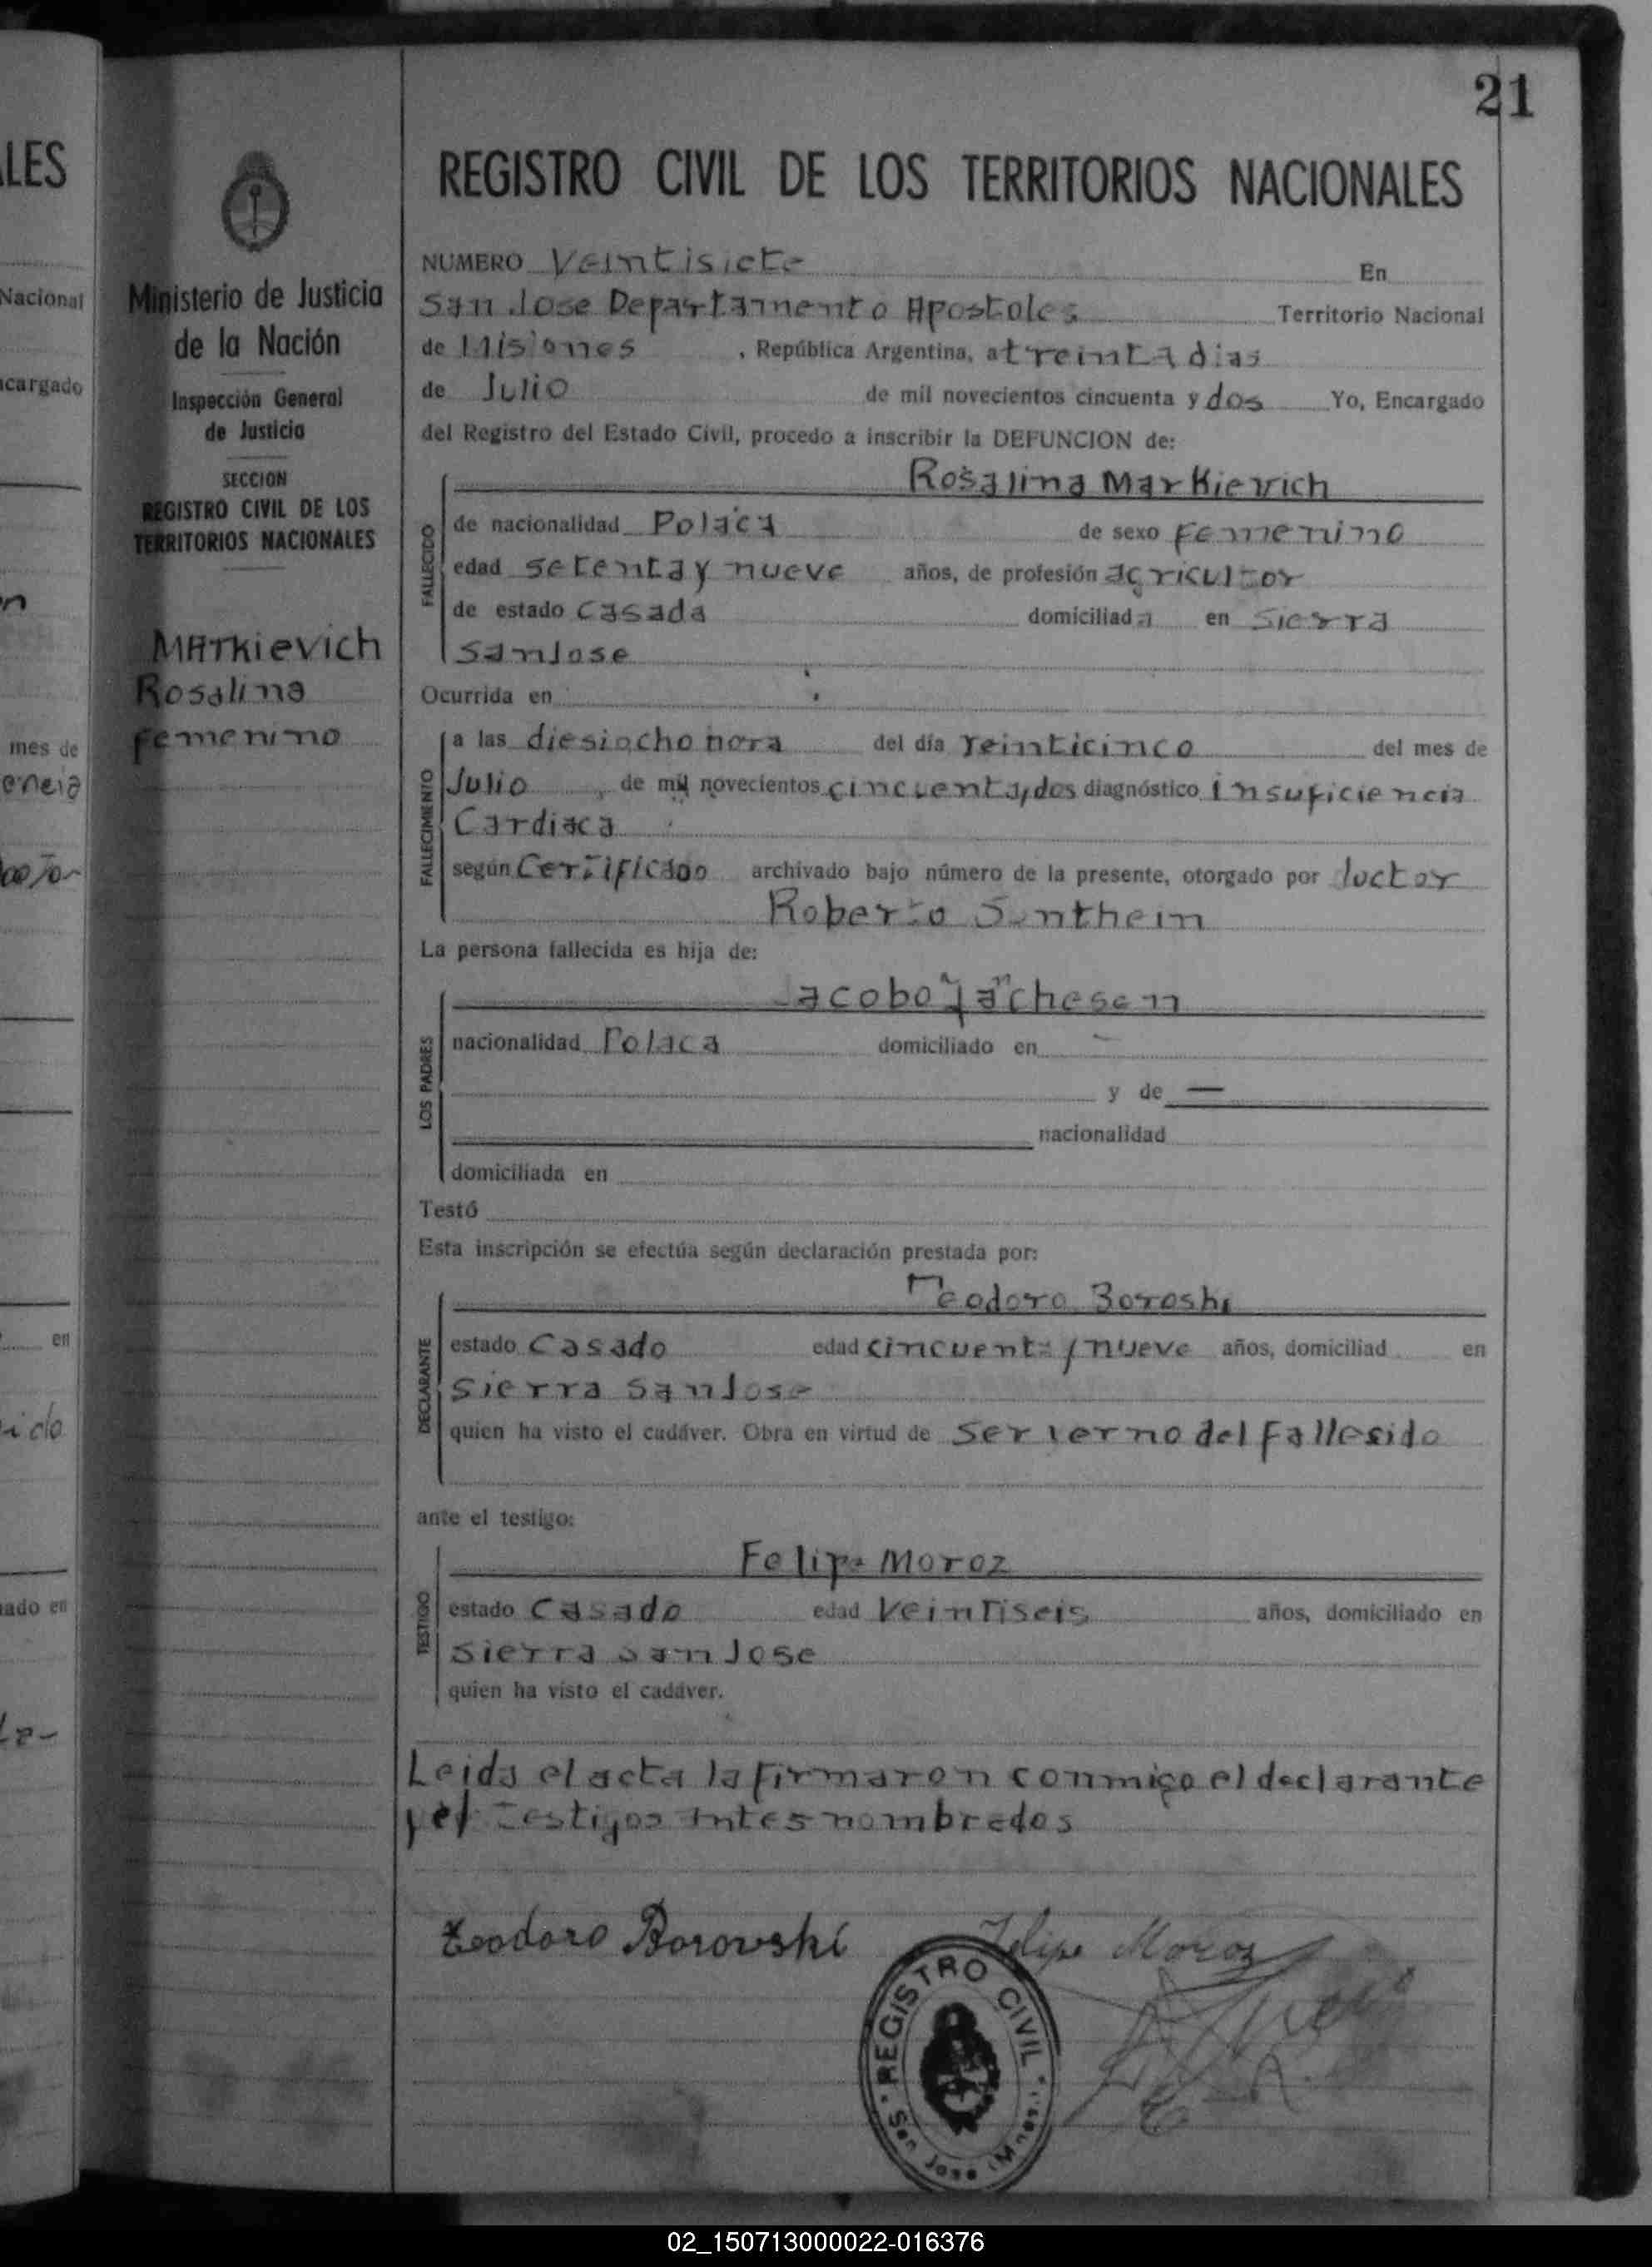 21
REGISTRO CIVIL DE LOS TERRITORIOS NACIONALES
Ministerio de Justicia
de la Nación
Inspección General
de Justicia
SECCION
REGISTRO CIVIL DE LOS
TERRITORIOS NACIONALES
Markievich
Rosalina
femenino
NUMERO Veintisiete En
San Jose Departamento Apostoles Territorio Nacional
de Misiones, República Argentina, a treinta dias
de Julio de mil novecientos cincuenta y dos Yo, Encargado
del Registro del Estado Civil, procedo a inscribir la DEFUNCION de:
Rosalina Markievich
FALLECIDO
de nacionalidad Polaca de sexo femenino
edad setenta y nueve años, de profesión agricultor
de estado casada domiciliada en Sierra
San Jose
Ocurrida en
FALLECIMIENTO
a las diesiocho hora del día veinticinco del mes de
Julio de mil novecientos cincuenta y dos diagnóstico insuficiencia
Cardiaca
según Certificado archivado bajo número de la presente, otorgado por doctor
Roberto
La persona fallecida es hija de:
LOS PADRES
Jacobo
nacionalidad Polaca domiciliado en
y de —
nacionalidad
domiciliada en
Testó
Esta inscripción se efectúa según declaración prestada por:
Teodoro Boroski
DECLARANTE
estado Casado edad cincuenta y nueve años, domiciliad en
Sierra San Jose
quien ha visto el cadáver. Obra en virtud de ser yerno del fallesido
ante el testigo:
Felipe Moroz
TESTIGO
estado Casado edad Veintiseis años, domiciliado en
Sierra San Jose
quien ha visto el cadáver.
Leida el acta la firmaron conmigo el declarante
y el testigos antes nombrados
Teodoro Borovski Felipe Moroz
REGISTRO CIVIL
San Jose (Mnes.)
LES
Nacional
cargado
mes de
encia
en
ado en
02_150713000022-016376